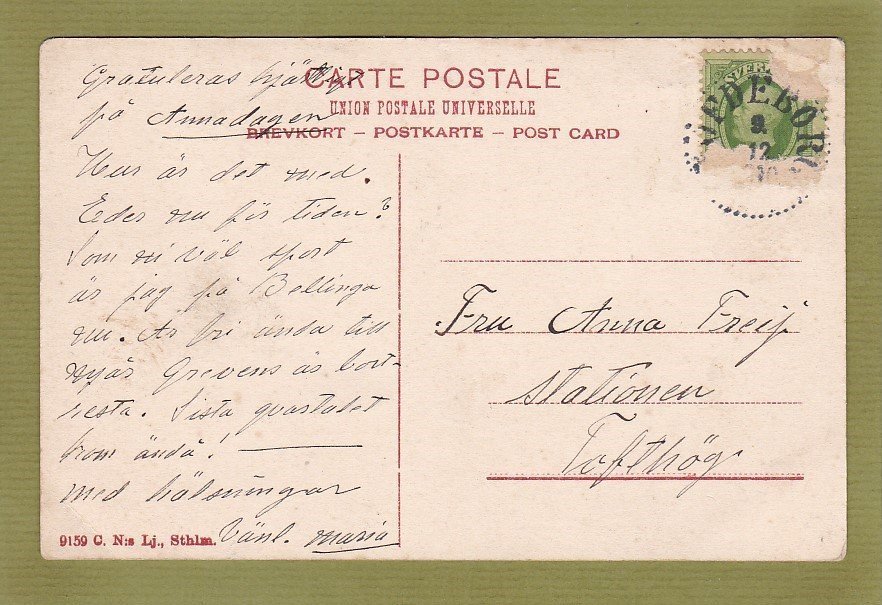 CARTE POSTALE
UNION POSTALE UNIVERSELLE
BREVKORT – POSTKARTE – POST CARD
Gratuleras hjärtligt
på Annadagen
Hur är det med.
Eder nu för tiden?
Som ni väl sport
är jag på Bellinga
nu. Är fri ända till
nyår Grevens är bort-
resta. Sista quartalet
kom ändå!
med hälsningar
Vänl. Maria
9159 C. N:s Lj., Sthlm.
SVER
9
12
Fru Anna Freij
Stationen
Tofthög